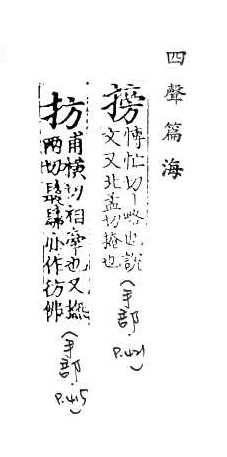 四聲篇海
搒
博忙切丨略也說
文又北孟切掩也
(手部. P.421)
㧍
甫橫切相牽也又撫
兩切髣髴亦作彷彿
(手部. P.415)